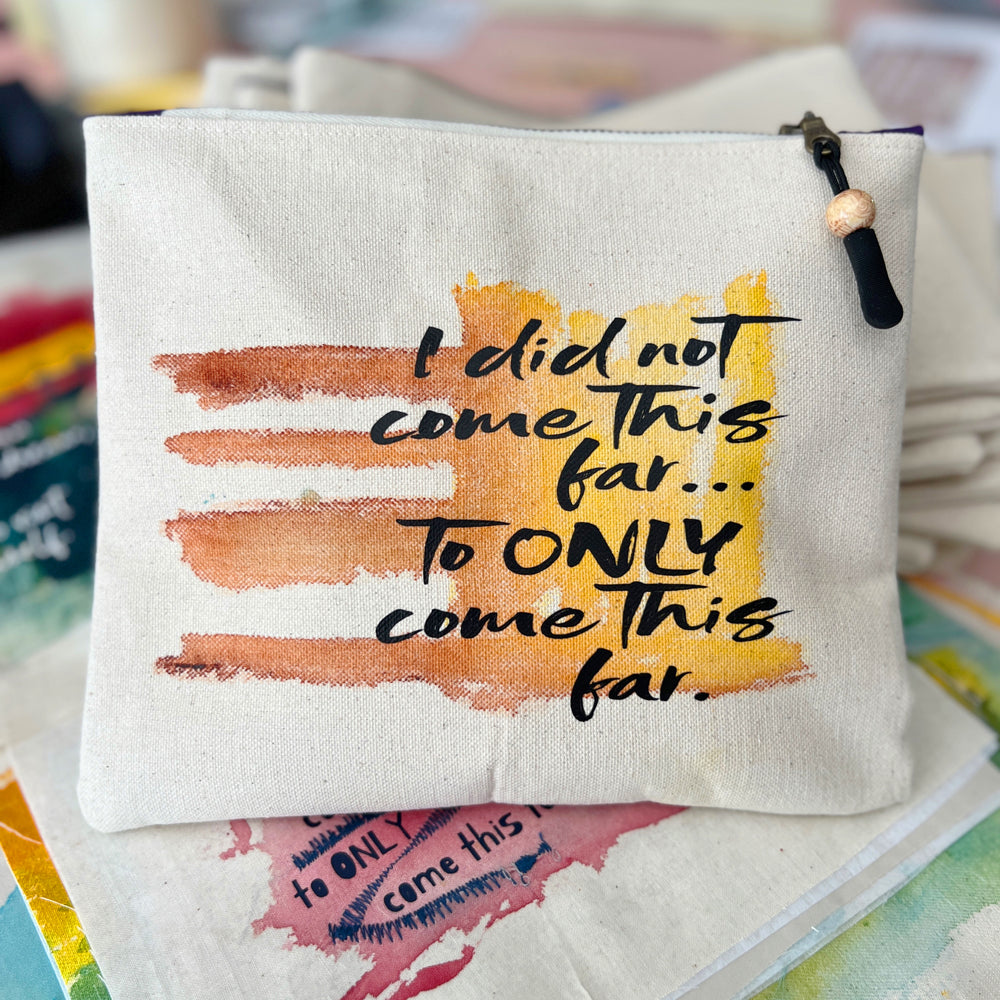 I did not
come This
far...
To ONLY
come This
far.
to ONLY
come this